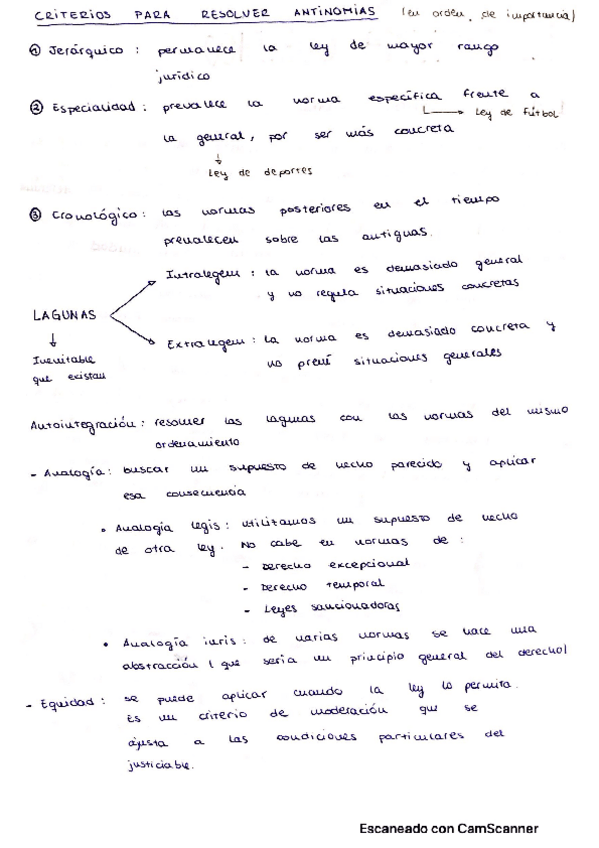 CRITERIOS PARA RESOLVER ANTINOMIAS (en orden de importancia)
① Jerárquico : permanece la ley de mayor rango
jurídico
② Especialidad : prevalece la norma específica frente a
→ Ley de fútbol
la general, por ser más concreta
↓
Ley de deportes
③ Cronológico : las normas posteriores en el tiempo
prevalecen sobre las antiguas.
Intralegem : la norma es demasiado general
y no regula situaciones concretas
LAGUNAS
↓
Inevitable
que existan
Extralegem : la norma es demasiado concreta y
no prevé situaciones generales
Autointegración : resolver las lagunas con las normas del mismo
ordenamiento
- Analogía : buscar un supuesto de hecho parecido y aplicar
esa consecuencia
• Analogía legis : utilizamos un supuesto de hecho
de otra ley. No cabe en normas de :
- Derecho excepcional
- Derecho temporal
- Leyes sancionadoras
• Analogía iuris : de varias normas se hace una
abstracción ( que sería un principio general del derecho)
- Equidad : se puede aplicar cuando la ley lo permita.
Es un criterio de moderación que se
ajusta a las condiciones particulares del
justiciable.
Escaneado con CamScanner